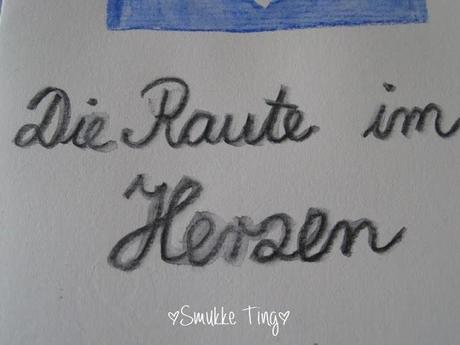 Die Raute im
Herzen
♡Smukke Ting♡